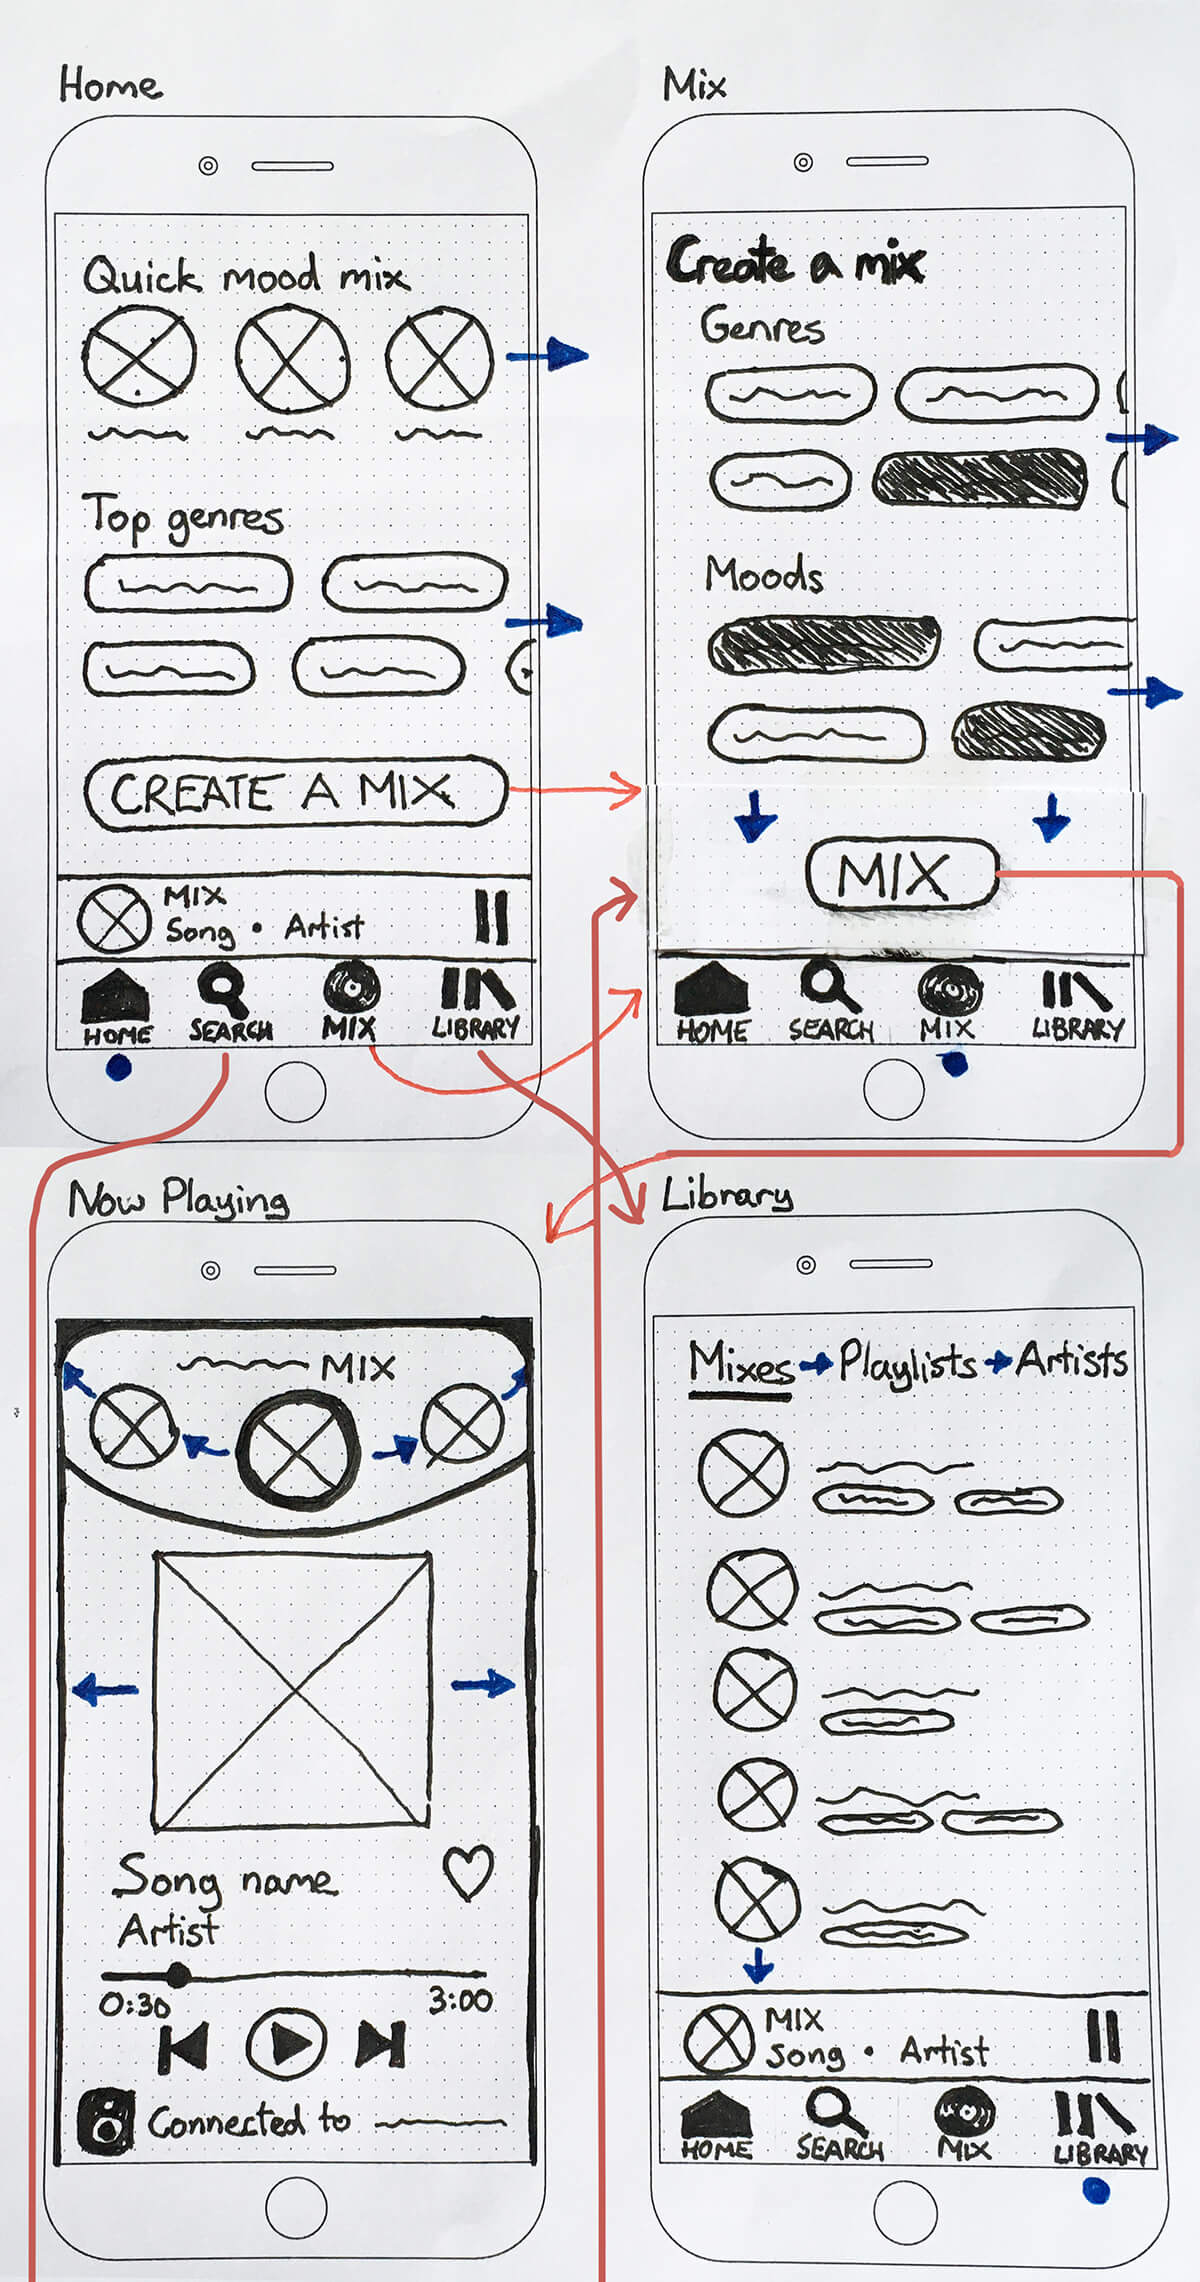 Home
Quick mood mix
Top genres
CREATE A MIX
MIX
Song • Artist
HOME SEARCH MIX LIBRARY
Mix
Create a mix
Genres
Moods
MIX
HOME SEARCH MIX LIBRARY
Now Playing
MIX
Song name
Artist
0:30 3:00
Connected to
Library
Mixes Playlists Artists
MIX
Song • Artist
HOME SEARCH MIX LIBRARY